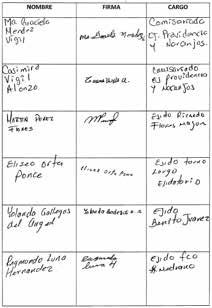 NOMBRE FIRMA CARGO
Ma Graciela
Mendez
Vigil
Ma Graciela Mendez
Comisariada
Ej. Providencia
y Naranjos.
Casimiro
Vigil
Alonzo.
Comisariado
ej providencia
y Naranjos
Martin Perez
Flores
Ejido Ricardo
Flores Magon
Eliseo Orta
Ponce
Eliseo Orta Ponce
Ejido torno
Largo
Ejidatario
Yolanda Gallegos
del Angel
Ejido
Benito Juarez
Raymundo Luna
Hernandez
Raymundo
Luna H
Ejido fco
I Madrano